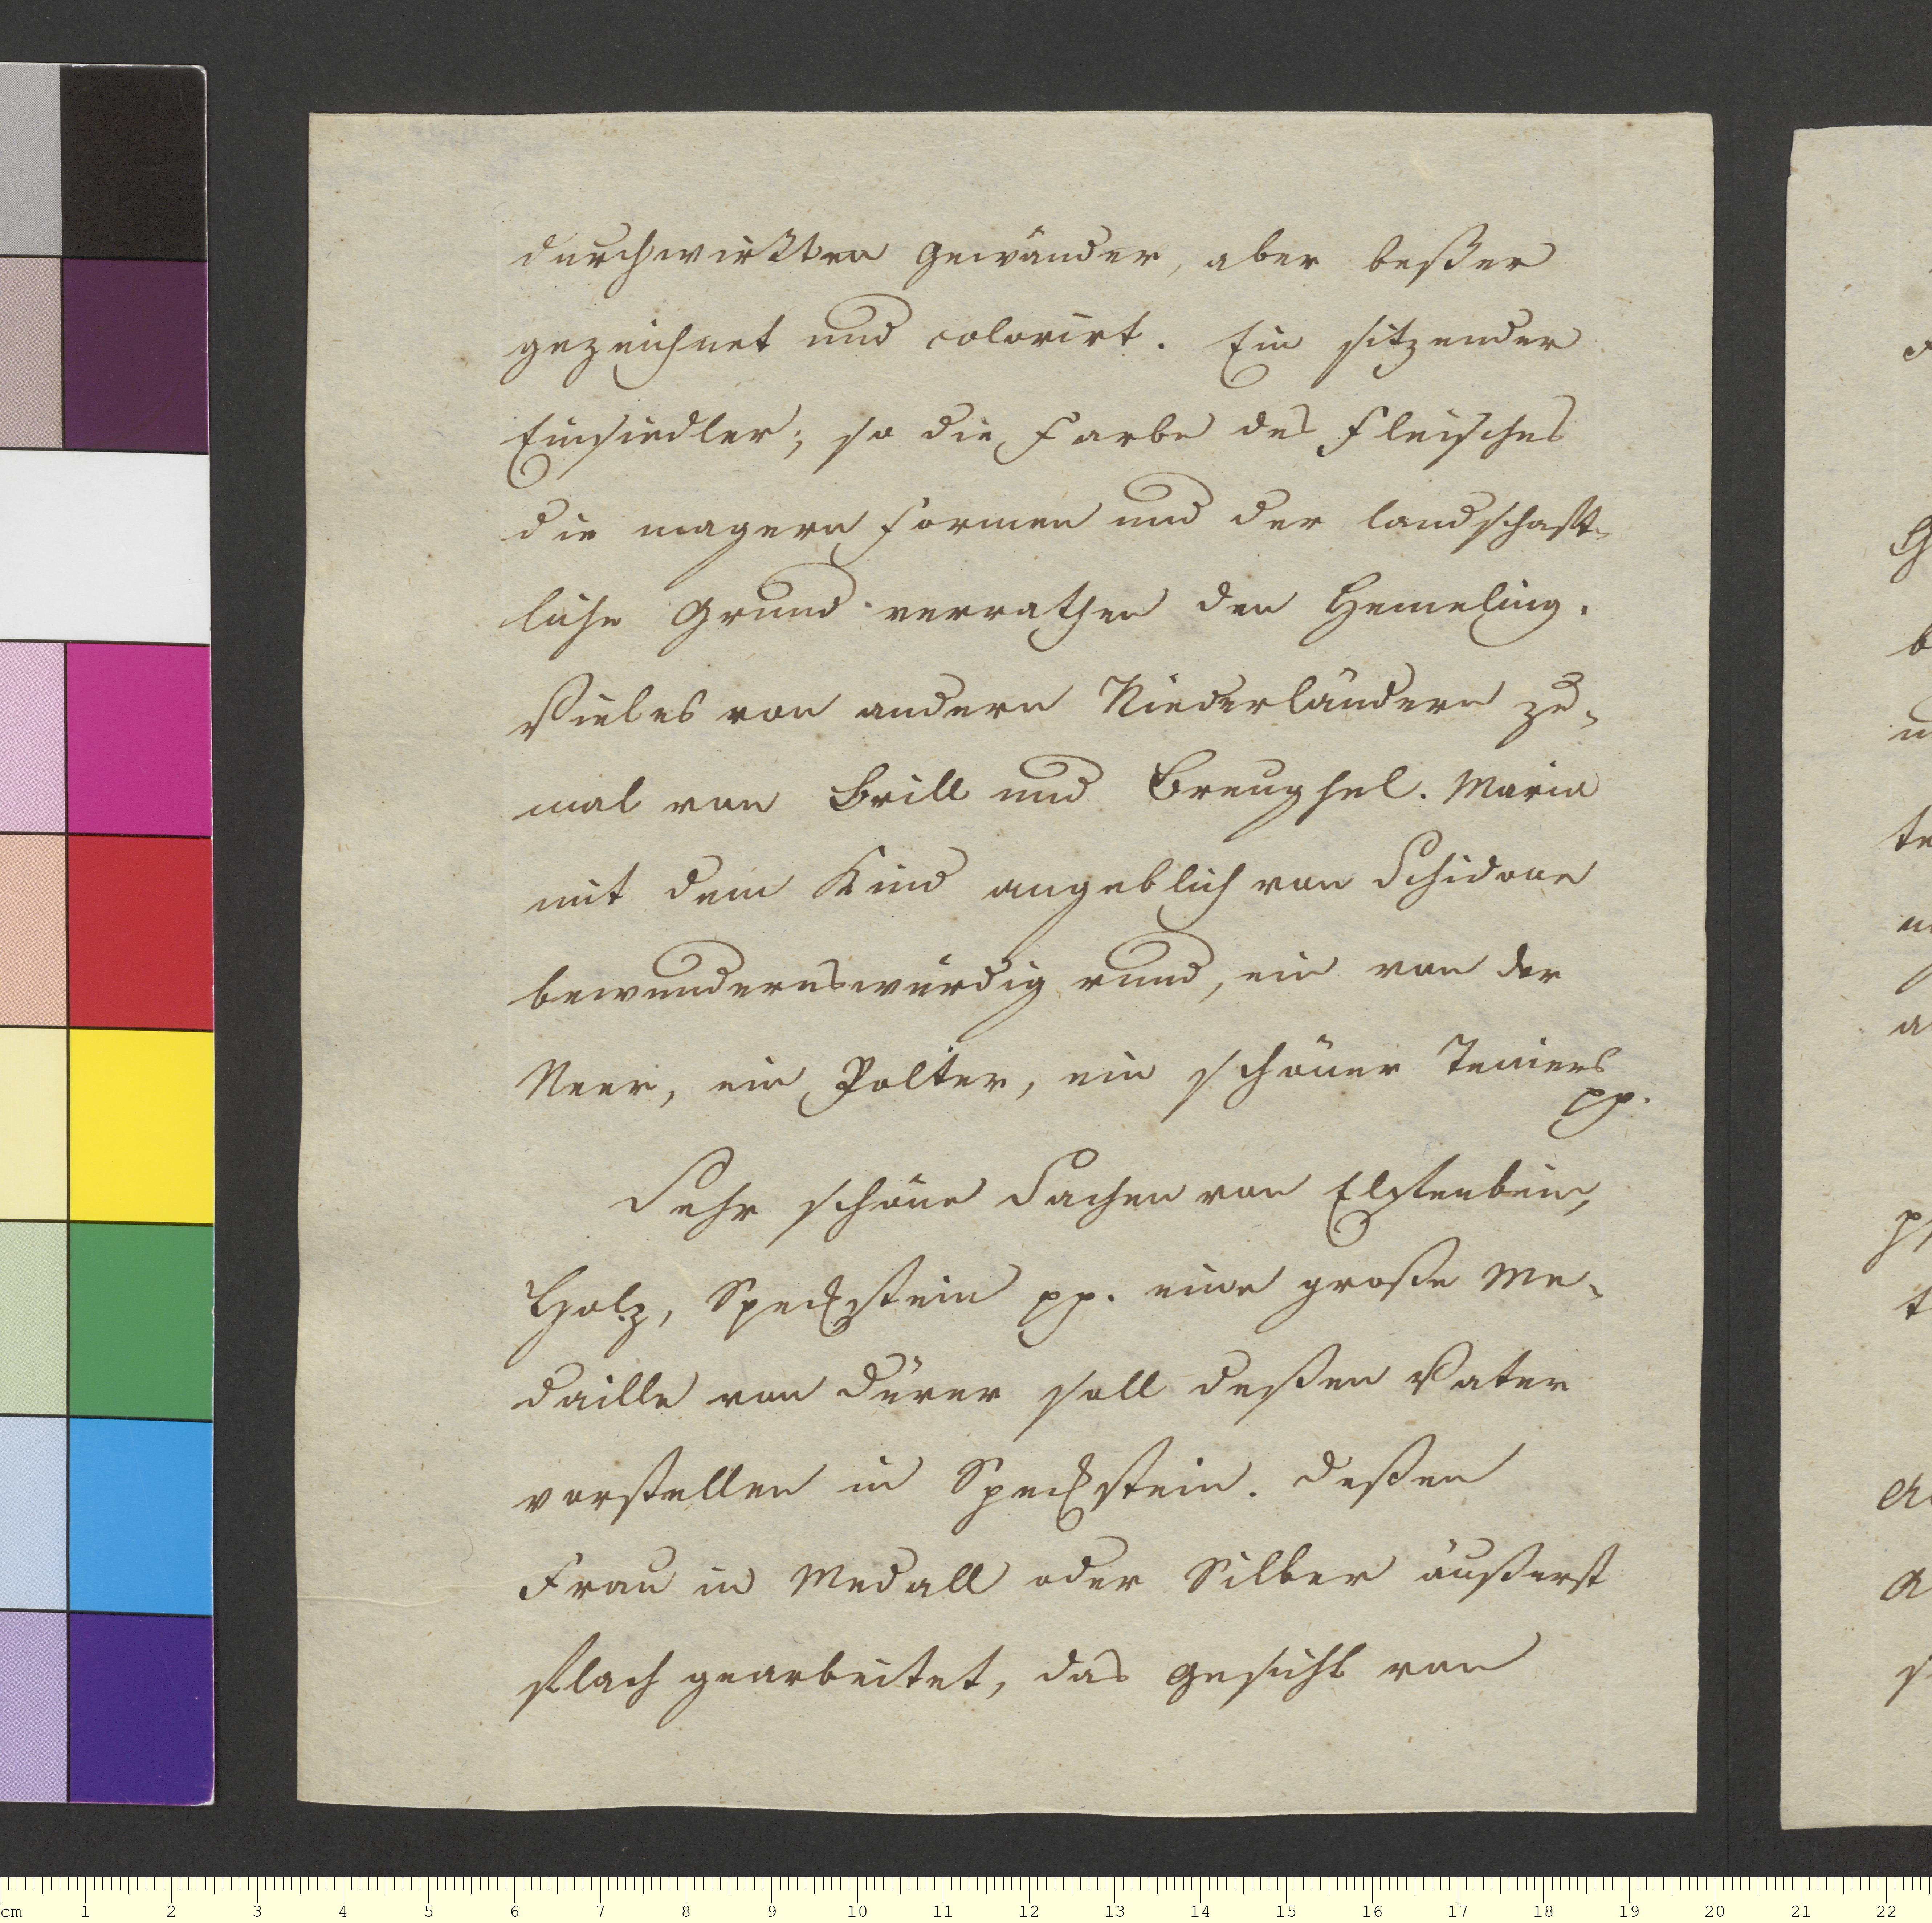 durchwirkten Gewänder, aber beßer
gezeichnet und colorirt. Ein sitzender
Einsiedler; so die Farbe des Fleisches
die magern Formen und der landschaft-
liche Grund verrathen den Hemeling.
Vieles von andern Niederländern zu-
mal von Brill und Breughel. Maria
mit dem Kind angeblich von Schidone
bewundernswürdig rund, ein van der
Neer, ein Polter, ein schöner Teniers
pp.
Sehr schöne Sachen von Elfenbein,
Holz, Speckstein pp. eine große Me-
daille von Dürer soll deßen Vater
vorstellen in Speckstein. Deßen
Frau in Medall oder Silber äußerst
flach gearbeitet, das Gesicht von
cm 1 2 3 4 5 6 7 8 9 10 11 12 13 14 15 16 17 18 19 20 21 22